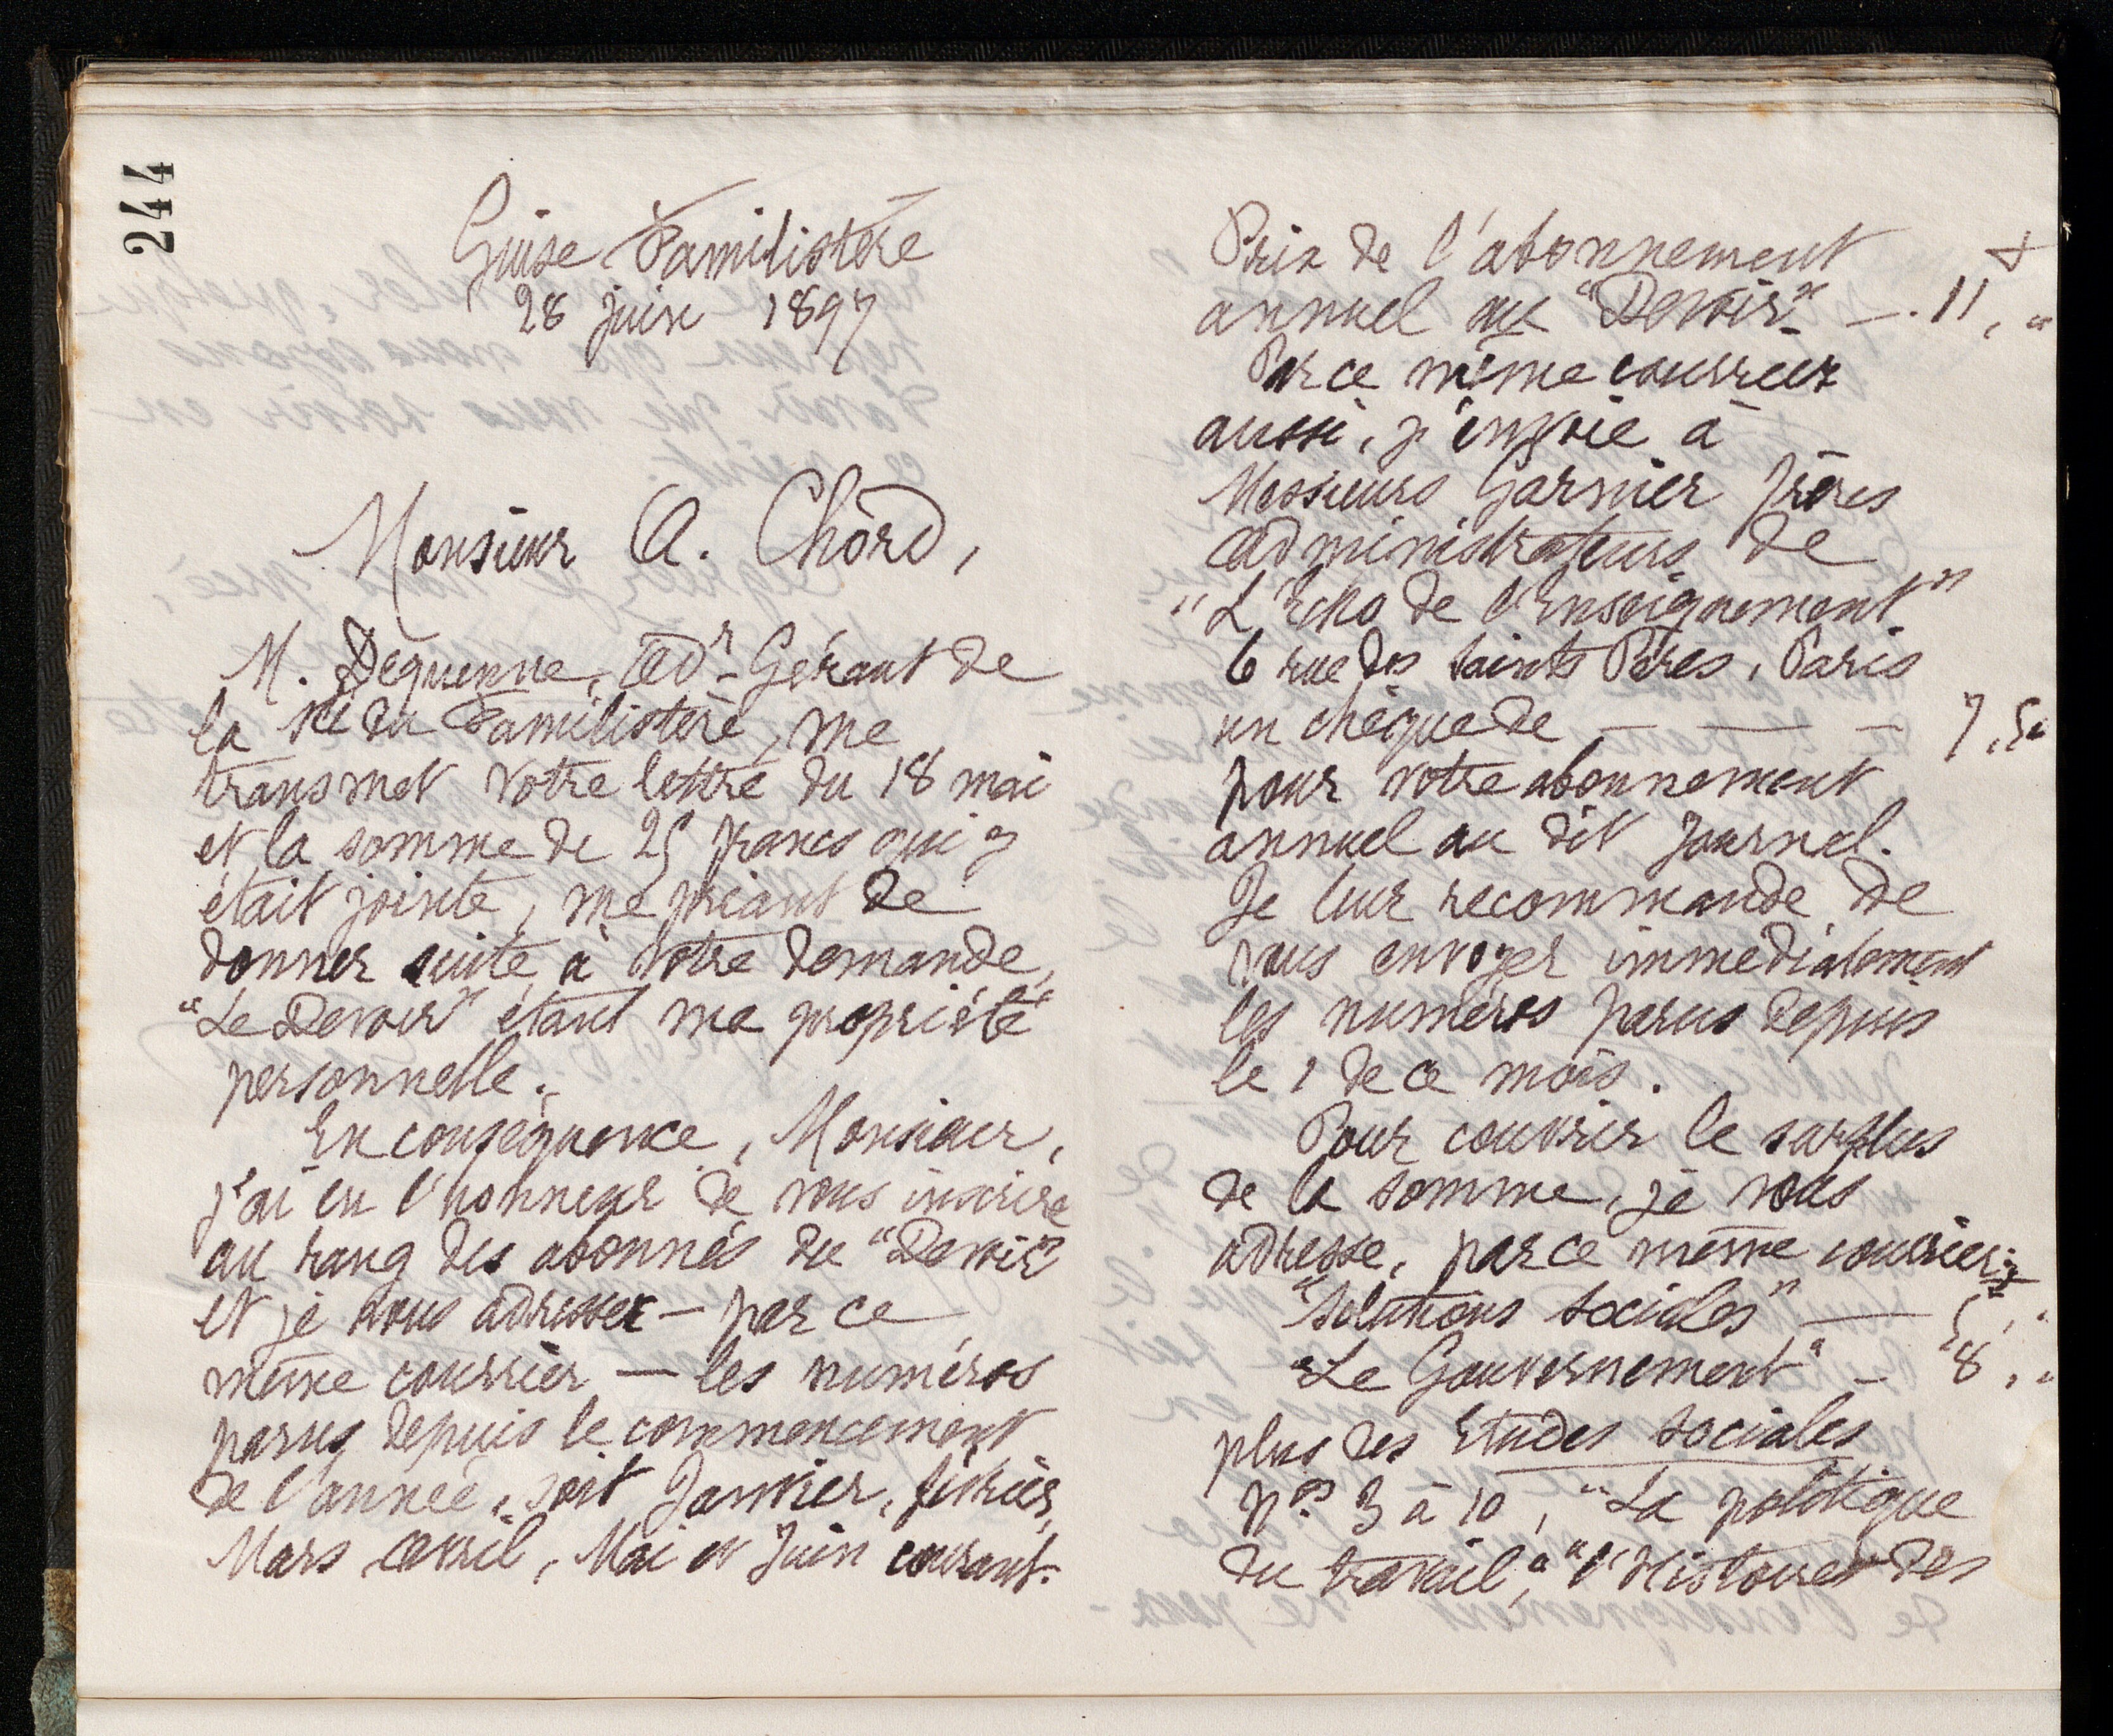 244
Guise Familistère
28 juin 1897
Monsieur A. Chôrd,
M. Dequenne, Adr-Gérant de
la Sté du Familistère, me
transmet votre lettre du 18 mai
et la somme de 25 francs qui y
était jointe, me priant de
donner suite à votre demande,
"Le Devoir" étant ma propriété
personnelle.
En conséquence, Monsieur,
j'ai eu l'honneur de vous inscrire
au rang des abonnés du "Devoir"
et je vous adresse — par ce
même courrier — les numéros
parus depuis le commencement
de l'année, soit Janvier, février,
Mars Avril, Mai et Juin courant.
Prix de l'abonnement
annuel au "Devoir" — 11, "
Par ce même courrier
aussi, j'envoie à
Messieurs Garnier frères
Administrateurs de
"L'Echo de l'Enseignement"
6 rue des Saints Pères, Paris
un chèque de — — — 7,50
pour votre abonnement
annuel au dit Journal.
Je leur recommande de
vous envoyer immédiatement
les numéros parus depuis
le 1 de ce mois.
Pour couvrir le surplus
de la somme, je vous
adresse, par ce même courrier:
"Solutions sociales" — 5, "
"Le Gouvernement" — 8, "
plus des Etudes sociales
Nos 3 à 10, "La politique
du travail," "l'Histoire des